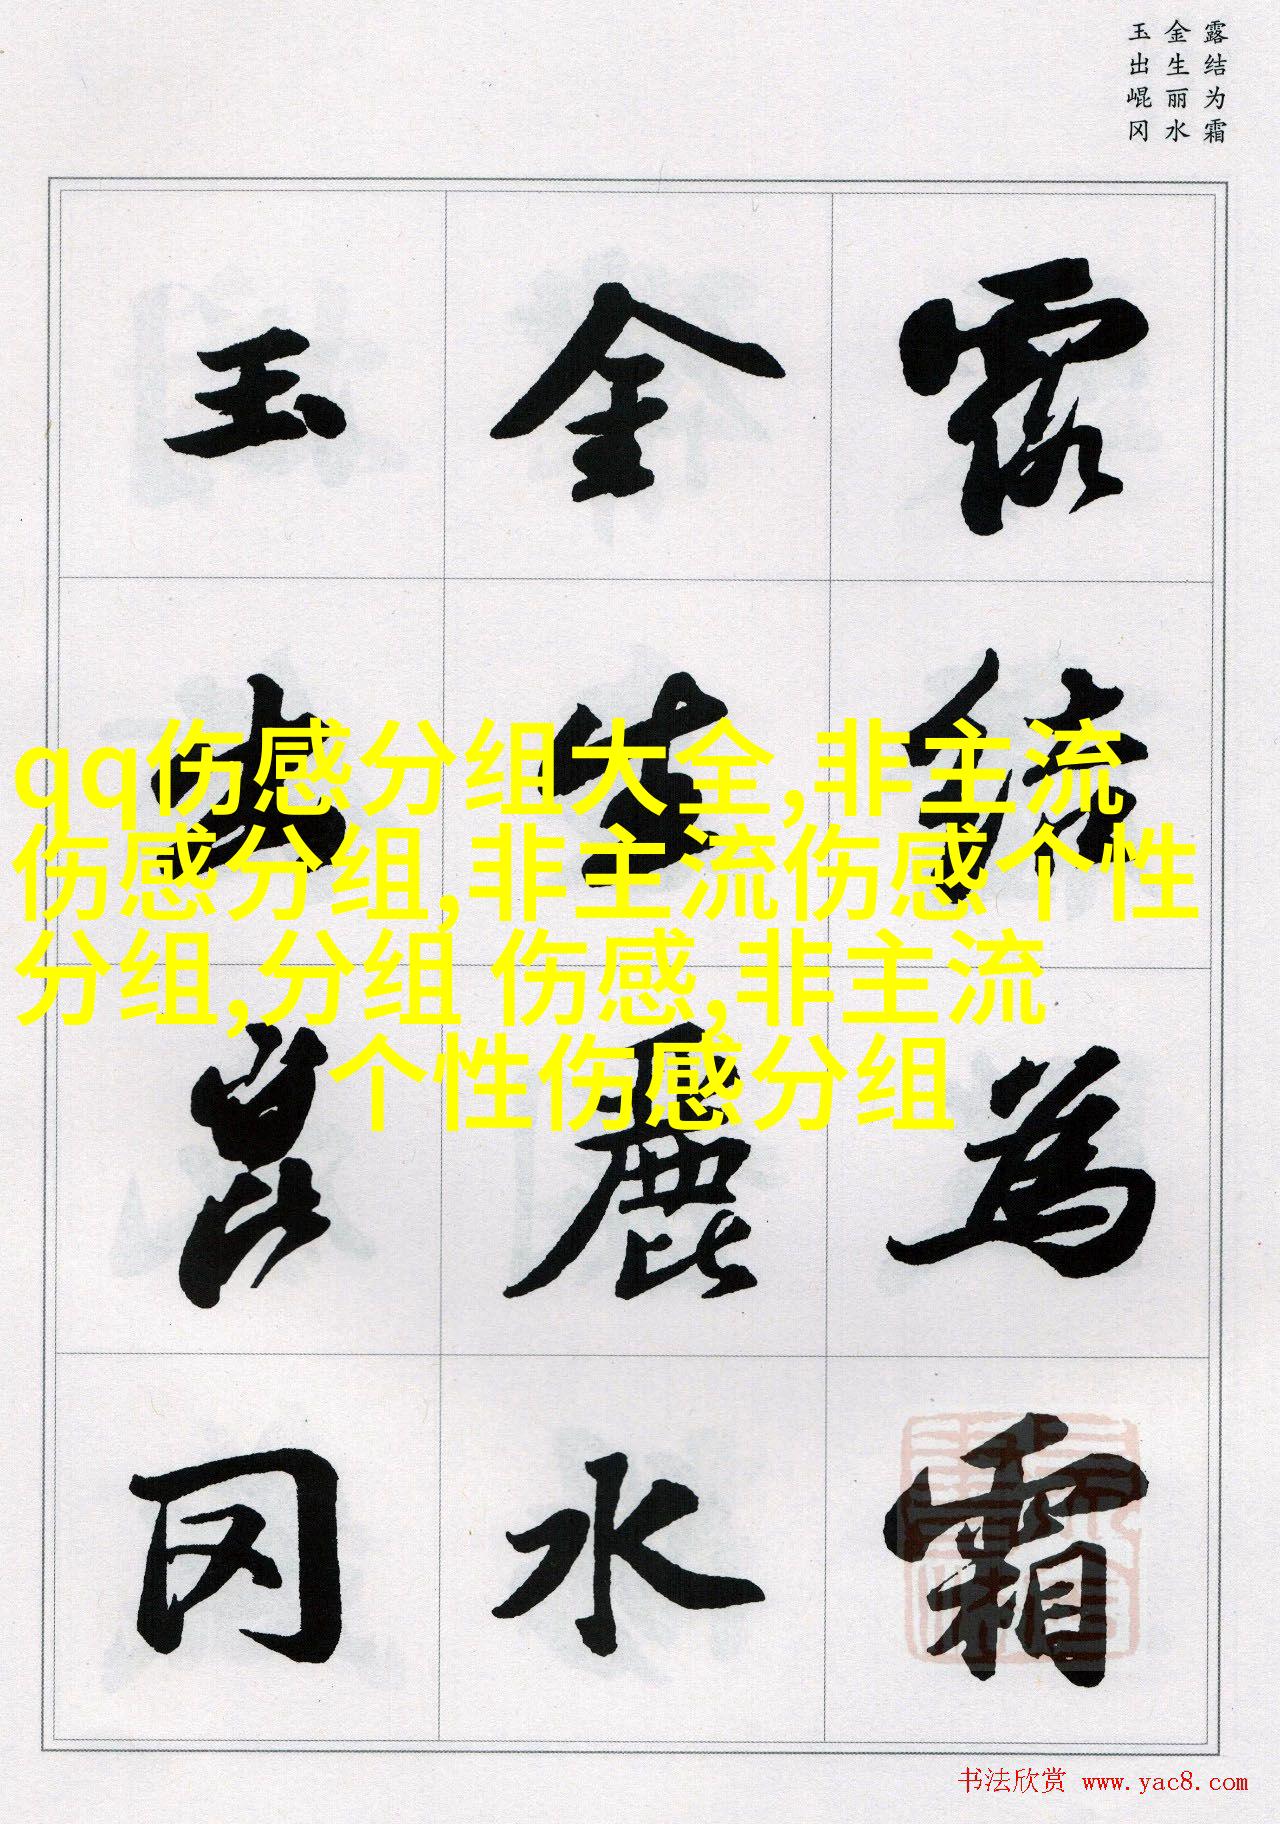 露结为霜
金生丽水
玉出崐冈
露結為霜
金生麗水
玉出崑冈
qq伤感分组大全,非主流
伤感分组,非主流伤感个性
分组,分组 伤感,非主流
个性伤感分组
书法欣赏 www.yac8.com